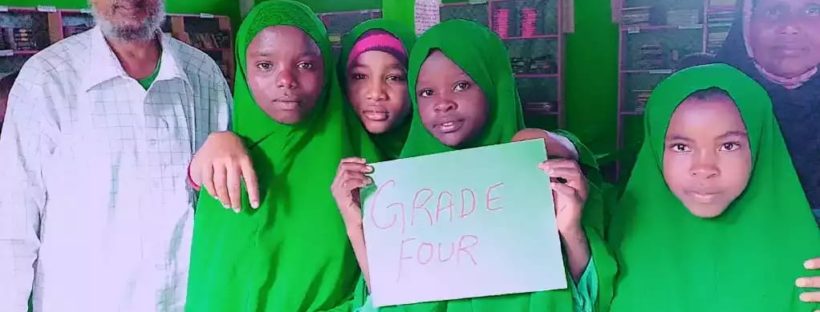 GRADE
FOUR